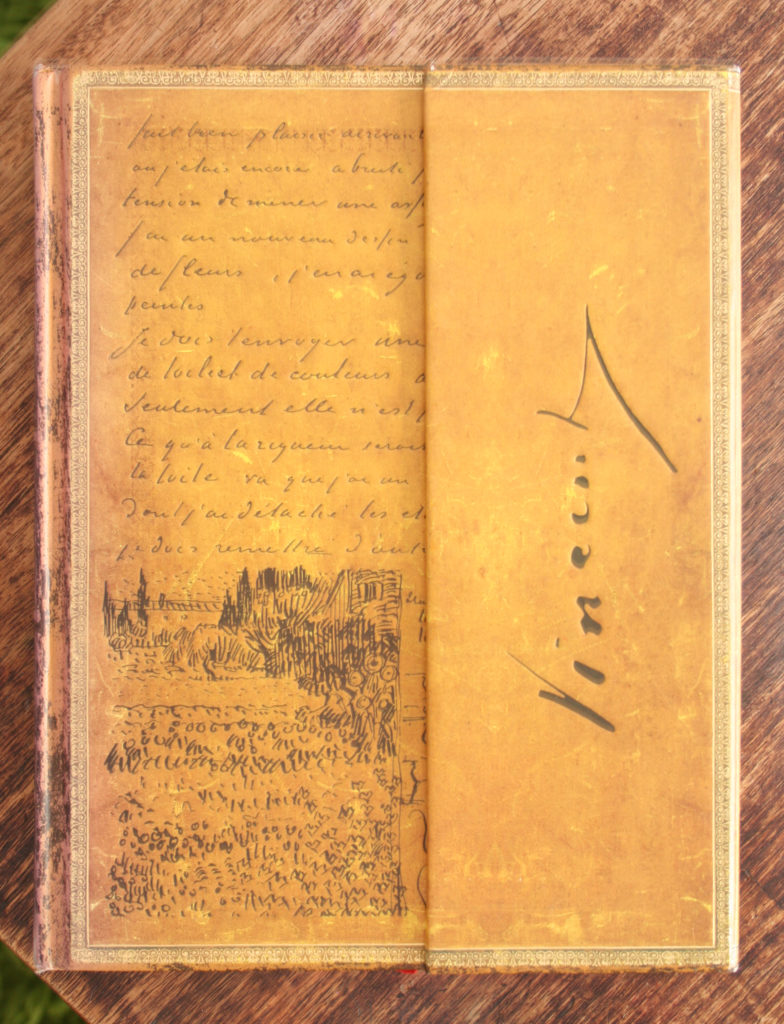 fait bien plaisir
ou j'etais encore abruti
tension de mener une
J'ai un nouveau dessin
de fleurs , j'en ai
peintes
Je dois t'envoyer une
de toiles et de couleurs
Seulement elle n'est
Ce qu'à la rigueur
la toile vu que j'ai un
dont j'ai détaché les
je dois remettre d'aut
Vincent